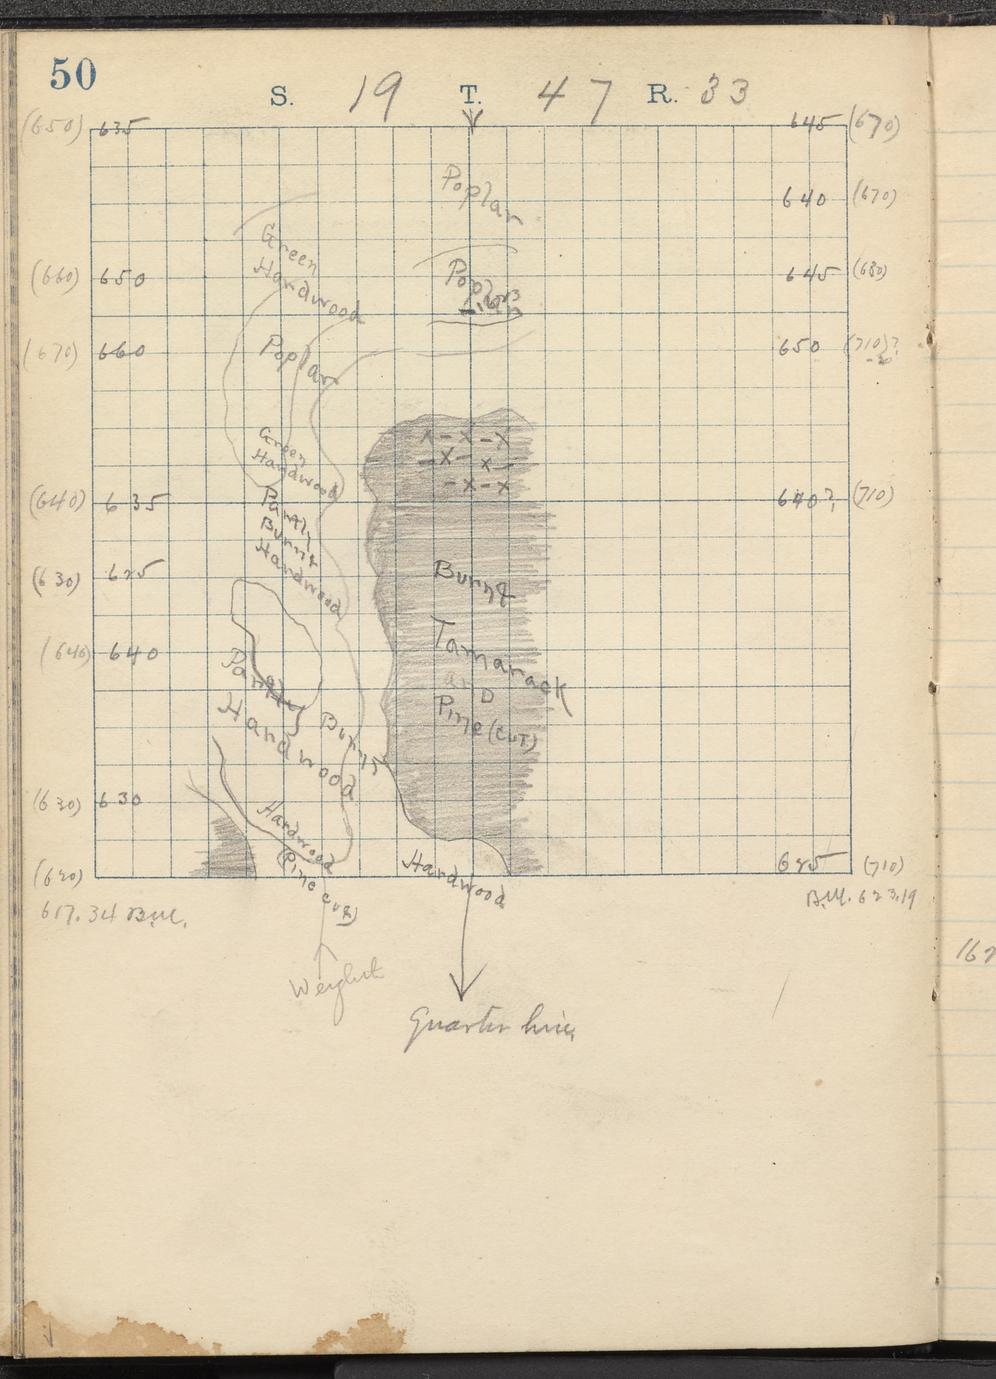 50
S. 19 T. 47 R. 33
(650) 635 645 (670)
Poplar
640 (670)
Green
Hardwood
(660) 650 645 (680)
Poplar
(670) 660 650 (710)?
Poplar
Green
Hardwood
(640) 635 640? (710)
Partly
Burnt
Hardwood
(630) 625
Burnt
Tamarack
and
Pine (cut)
(640) 640
Partly Burnt
Hardwood
(630) 630
Hardwood
(Pine cut)
Hardwood
(620) 625 (710)
617.34 B.M. B.M. 623.19
162
Quarter line